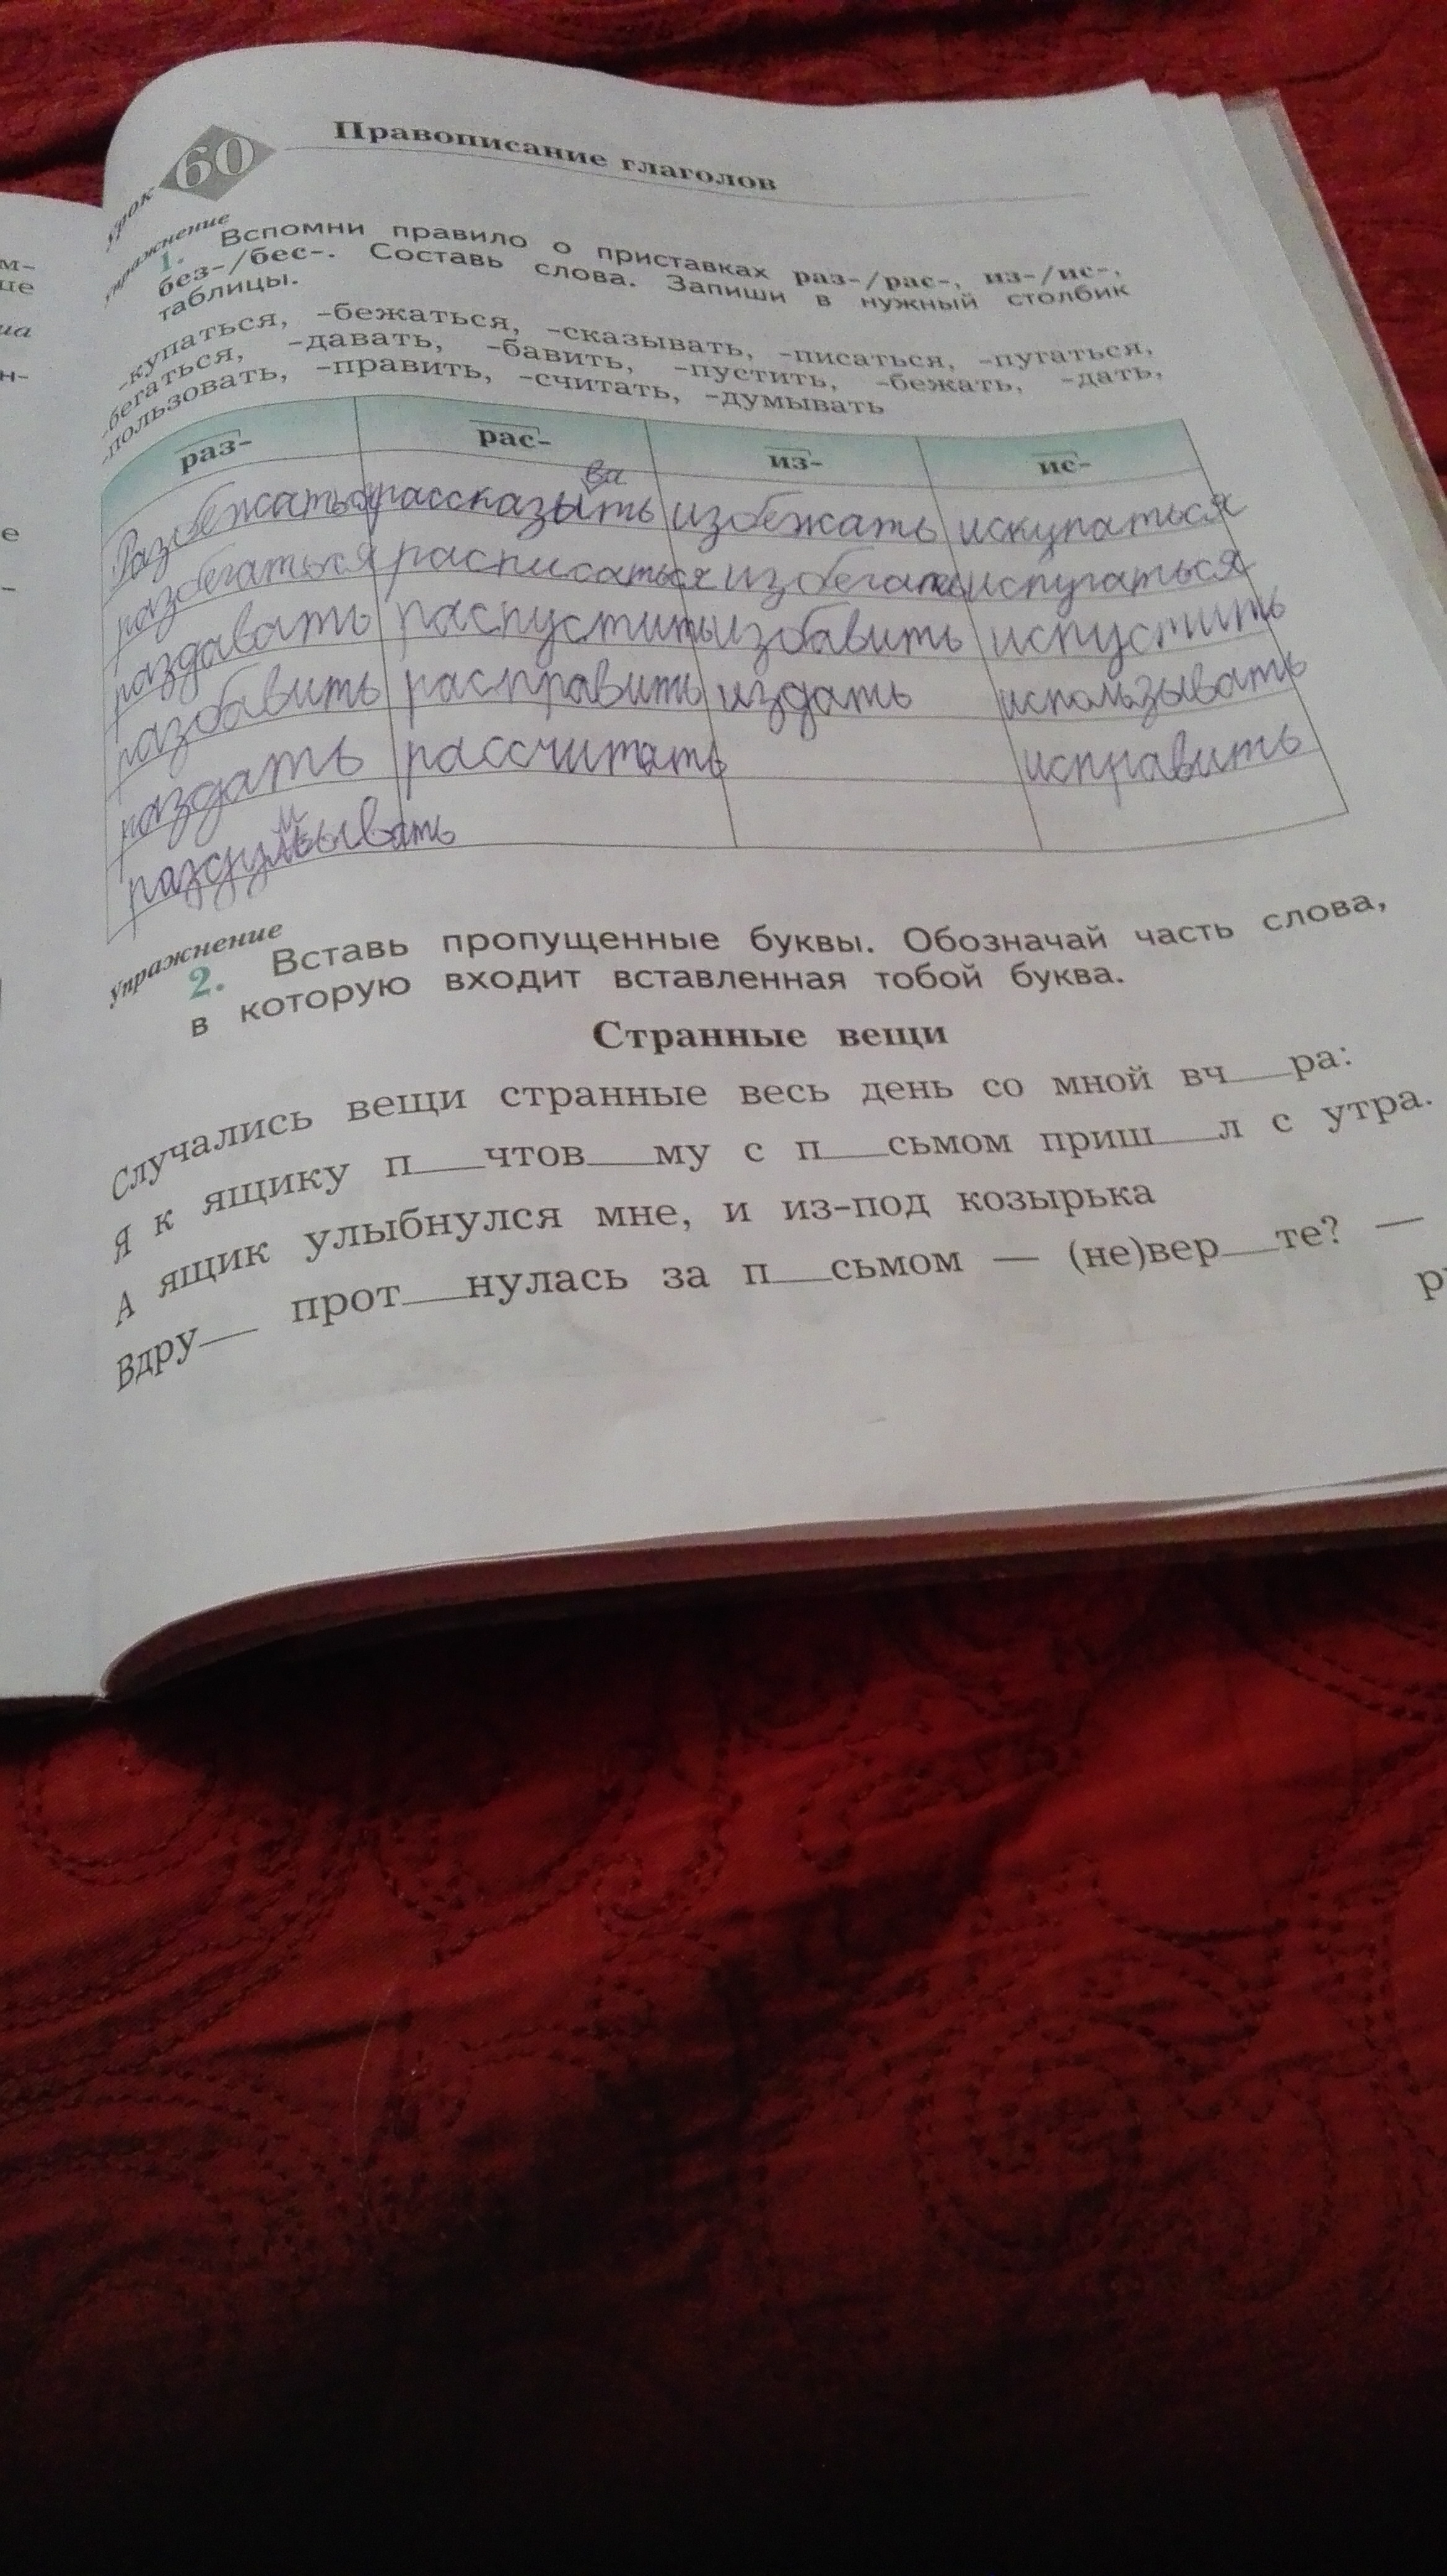 м-
ше
на
н-
е
-
урок 60 Правописание глаголов
упражнение
1. Вспомни правило о приставках раз-/рас-, из-/ис-,
без-/бес-. Составь слова. Запиши в нужный столбик
таблицы.
-купаться, -бежаться, -сказывать, -писаться, -пугаться,
-бегаться, -давать, -бавить, -пустить, -бежать, -дать,
-пользовать, -править, -считать, -думывать
раз- рас- из- ис-
ва
Разбежаться рассказыть избежать искупаться
разбегаться расписаться избегать испугаться
раздавать распустить избавить испустить
разбавить расправить издать использывать
раздать рассчитать исправить
раздумывать
упражнение
2. Вставь пропущенные буквы. Обозначай часть слова,
в которую входит вставленная тобой буква.
Странные вещи
Случались вещи странные весь день со мной вч__ра:
Я к ящику п__чтов__му с п__сьмом приш__л с утра.
А ящик улыбнулся мне, и из-под козырька
Вдру__ прот__нулась за п__сьмом — (не)вер__те? —